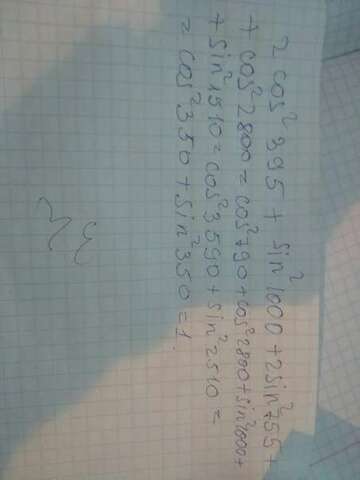 2 cos² 395 + sin² 1000 + 2 sin² 755 +
+ cos² 2800 = cos² 790 + cos² 2800 + sin² 1000 +
+ sin² 1510 = cos² 3590 + sin² 2510 =
= cos² 350 + sin² 350 = 1.